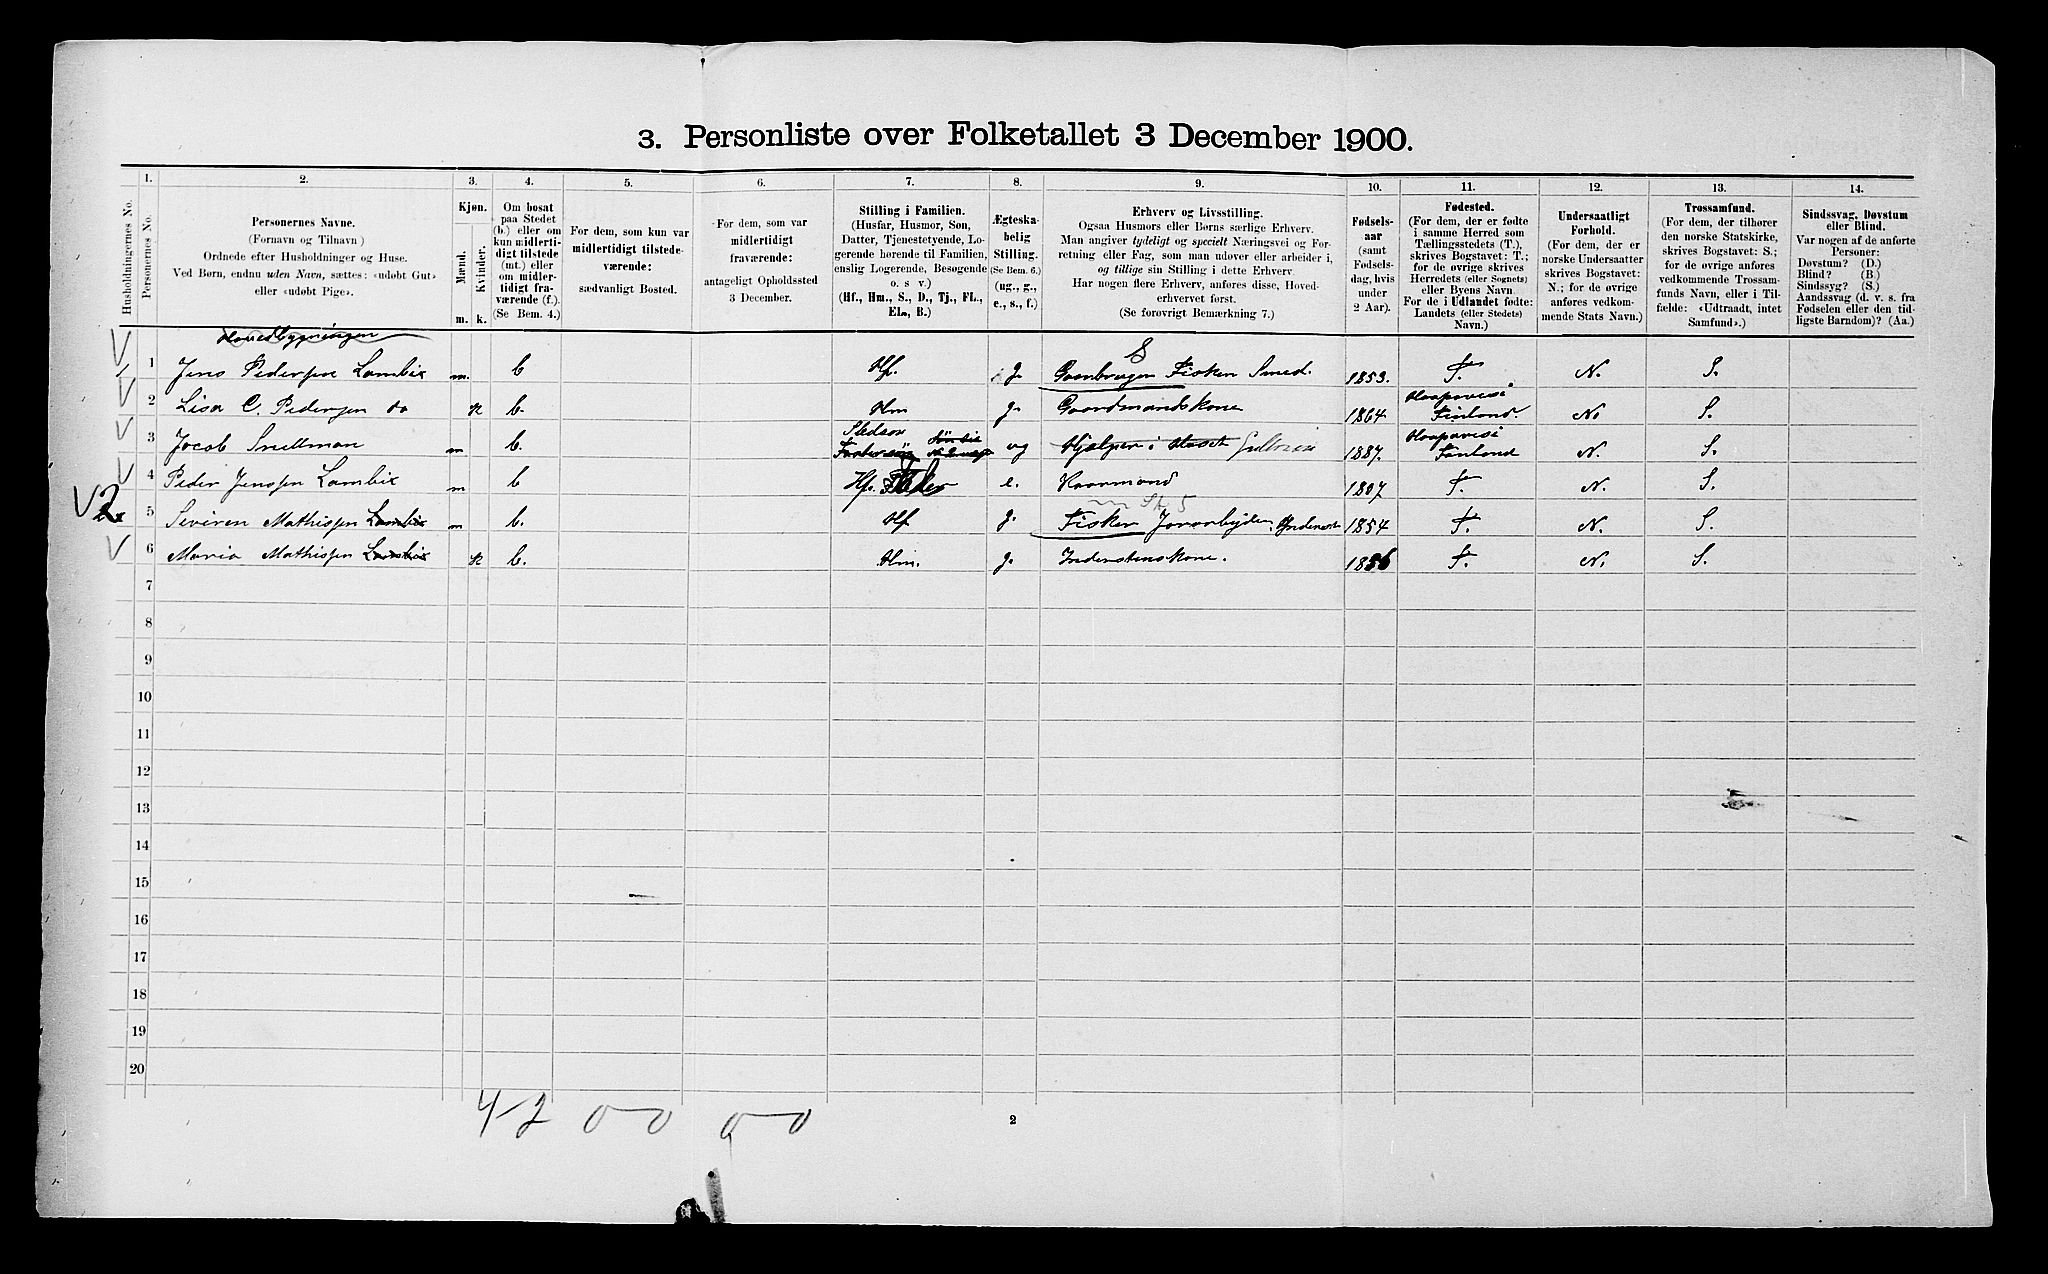 3. Personliste over Folketallet 3 December 1900.
1. 2. 3. 4. 5. 6. 7. 8. 9. 10. 11. 12. 13. 14.
Husholdningernes No.
Personernes No.
Personernes Navne.
(Fornavn og Tilnavn)
Ordnede efter Husholdninger og Huse.
Ved Børn, endnu uden Navn, sættes: «udøbt Gut»
eller «udøbt Pige».
Kjøn.
Mænd.
Kvinder.
m. k.
Om bosat
paa Stedet
(b.) eller om
kun midlerti-
digt tilstede
(mt.) eller
om midler-
tidigt fra-
værende (f.).
(Se Bem. 4.)
For dem, som kun var
midlertidigt tilstede-
værende:
sædvanligt Bosted.
For dem, som var
midlertidigt
fraværende:
antageligt Opholdssted
3 December.
Stilling i Familien.
(Husfar, Husmor, Søn,
Datter, Tjenestetyende, Lo-
gerende hørende til Familien,
enslig Logerende, Besøgende
o. s v.)
(Hf., Hm., S., D., Tj., FL.,
EL., B.)
Ægteska-
belig
Stilling.
(Se Bem. 6.)
(ug., g.,
e., s., f.)
Erhverv og Livsstilling.
Ogsaa Husmors eller Børns særlige Erhverv.
Man angiver tydeligt og specielt Næringsvei og For-
retning eller Fag, som man udøver eller arbeider i,
og tillige sin Stilling i dette Erhverv.
Har nogen flere Erhverv, anføres disse, Hoved-
erhvervet først.
(Se forøvrigt Bemærkning 7.)
Fødsels-
aar
(samt
Fødsels-
dag, hvis
under
2 Aar).
Fødested.
(For dem, der er fødte
i samme Herred som
Tællingsstedets (T.),
skrives Bogstavet: T.;
for de øvrige skrives
Herredets (eller Sognets)
eller Byens Navn.
For de i Udlandet fødte:
Landets (eller Stedets)
Navn.)
Undersaatligt
Forhold.
(For dem, der er
norske Undersaatter
skrives Bogstavet:
N.; for de øvrige
anføres vedkom-
mende Stats Navn.)
Trossamfund.
(For dem, der tilhører
den norske Statskirke,
skrives Bogstavet: S.;
for de øvrige anføres
vedkommende Trossam-
funds Navn, eller i Til-
fælde: «Udtraadt, intet
Samfund».)
Sindssvag, Døvstum
eller Blind.
Var nogen af de anførte
Personer:
Døvstum? (D.)
Blind? (B.)
Sindssyg? (S.)
Aandssvag (d. v. s. fra
Fødselen eller den tid-
ligste Barndom)? (Aa.)
Hovedbygningen
1 Jens Pedersen Lambis m. b Hf. g. Gaardbruger Fisker Smed. 1853. T. N. S.
2 Lisa C. Pedersen do k b. Hm g. Gaardmandskone 1864 Haapavesi Finland. N. S.
3 Jacob Snellman m b. Stedsøn ug Hjælper i Huset 1887. Haapavesi Finland N. S.
4 Peder Jenssen Lambis m b Hf. Fader e. Kaarmand 1807 T. N. S.
2 5 Seviren Mathissen Lambis m b. Hf g. Fisker Jordarbejder, Inderst 1854 T. N. S.
6 Maria Mathissen Lambis k b. Hm. g. Inderstenskone. 1856 T. N. S.
7
8
9
10
11
12
13
14
15
16
17
18
19
20
4-2 0-0 0-0
2